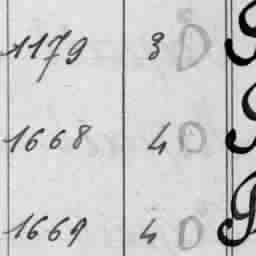 1179 3 D
1668 4 D
1669 4 D